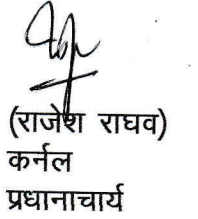 (राजेश राघव)
कर्नल
प्रधानाचार्य